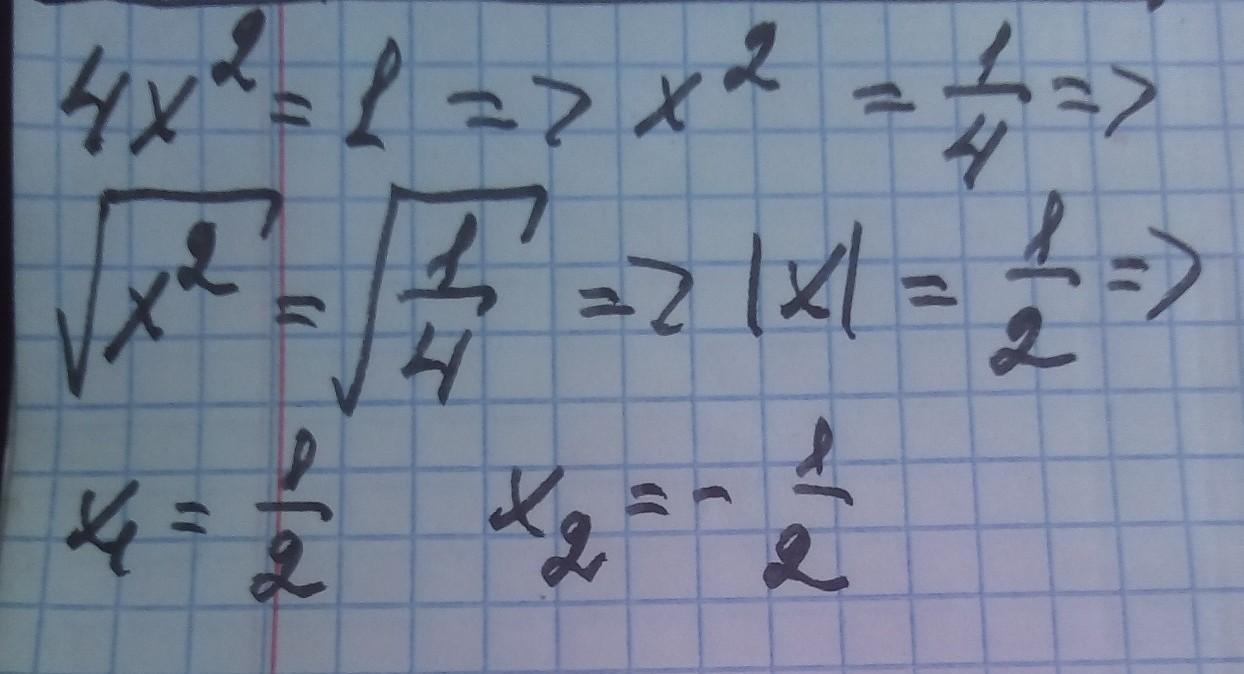 4x² = 1 => x² = 1/4 =>
√x² = √1/4 => |x| = 1/2 =>
x₁ = 1/2 x₂ = - 1/2